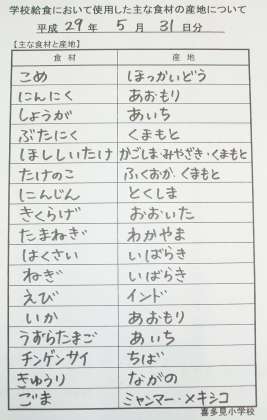 学校給食において使用した主な食材の産地について
平成 29 年 5 月 31 日分
【主な食材と産地】
食材 産地
こめ ほっかいどう
にんにく あおもり
しょうが あいち
ぶたにく くまもと
ほししいたけ かごしま・みやざき・くまもと
たけのこ ふくおか・くまもと
にんじん とくしま
きくらげ おおいた
たまねぎ わかやま
はくさい いばらき
ねぎ いばらき
えび インド
いか あおもり
うずらたまご あいち
チンゲンサイ ちば
きゅうり ながの
ごま ミャンマー・メキシコ
喜多見小学校